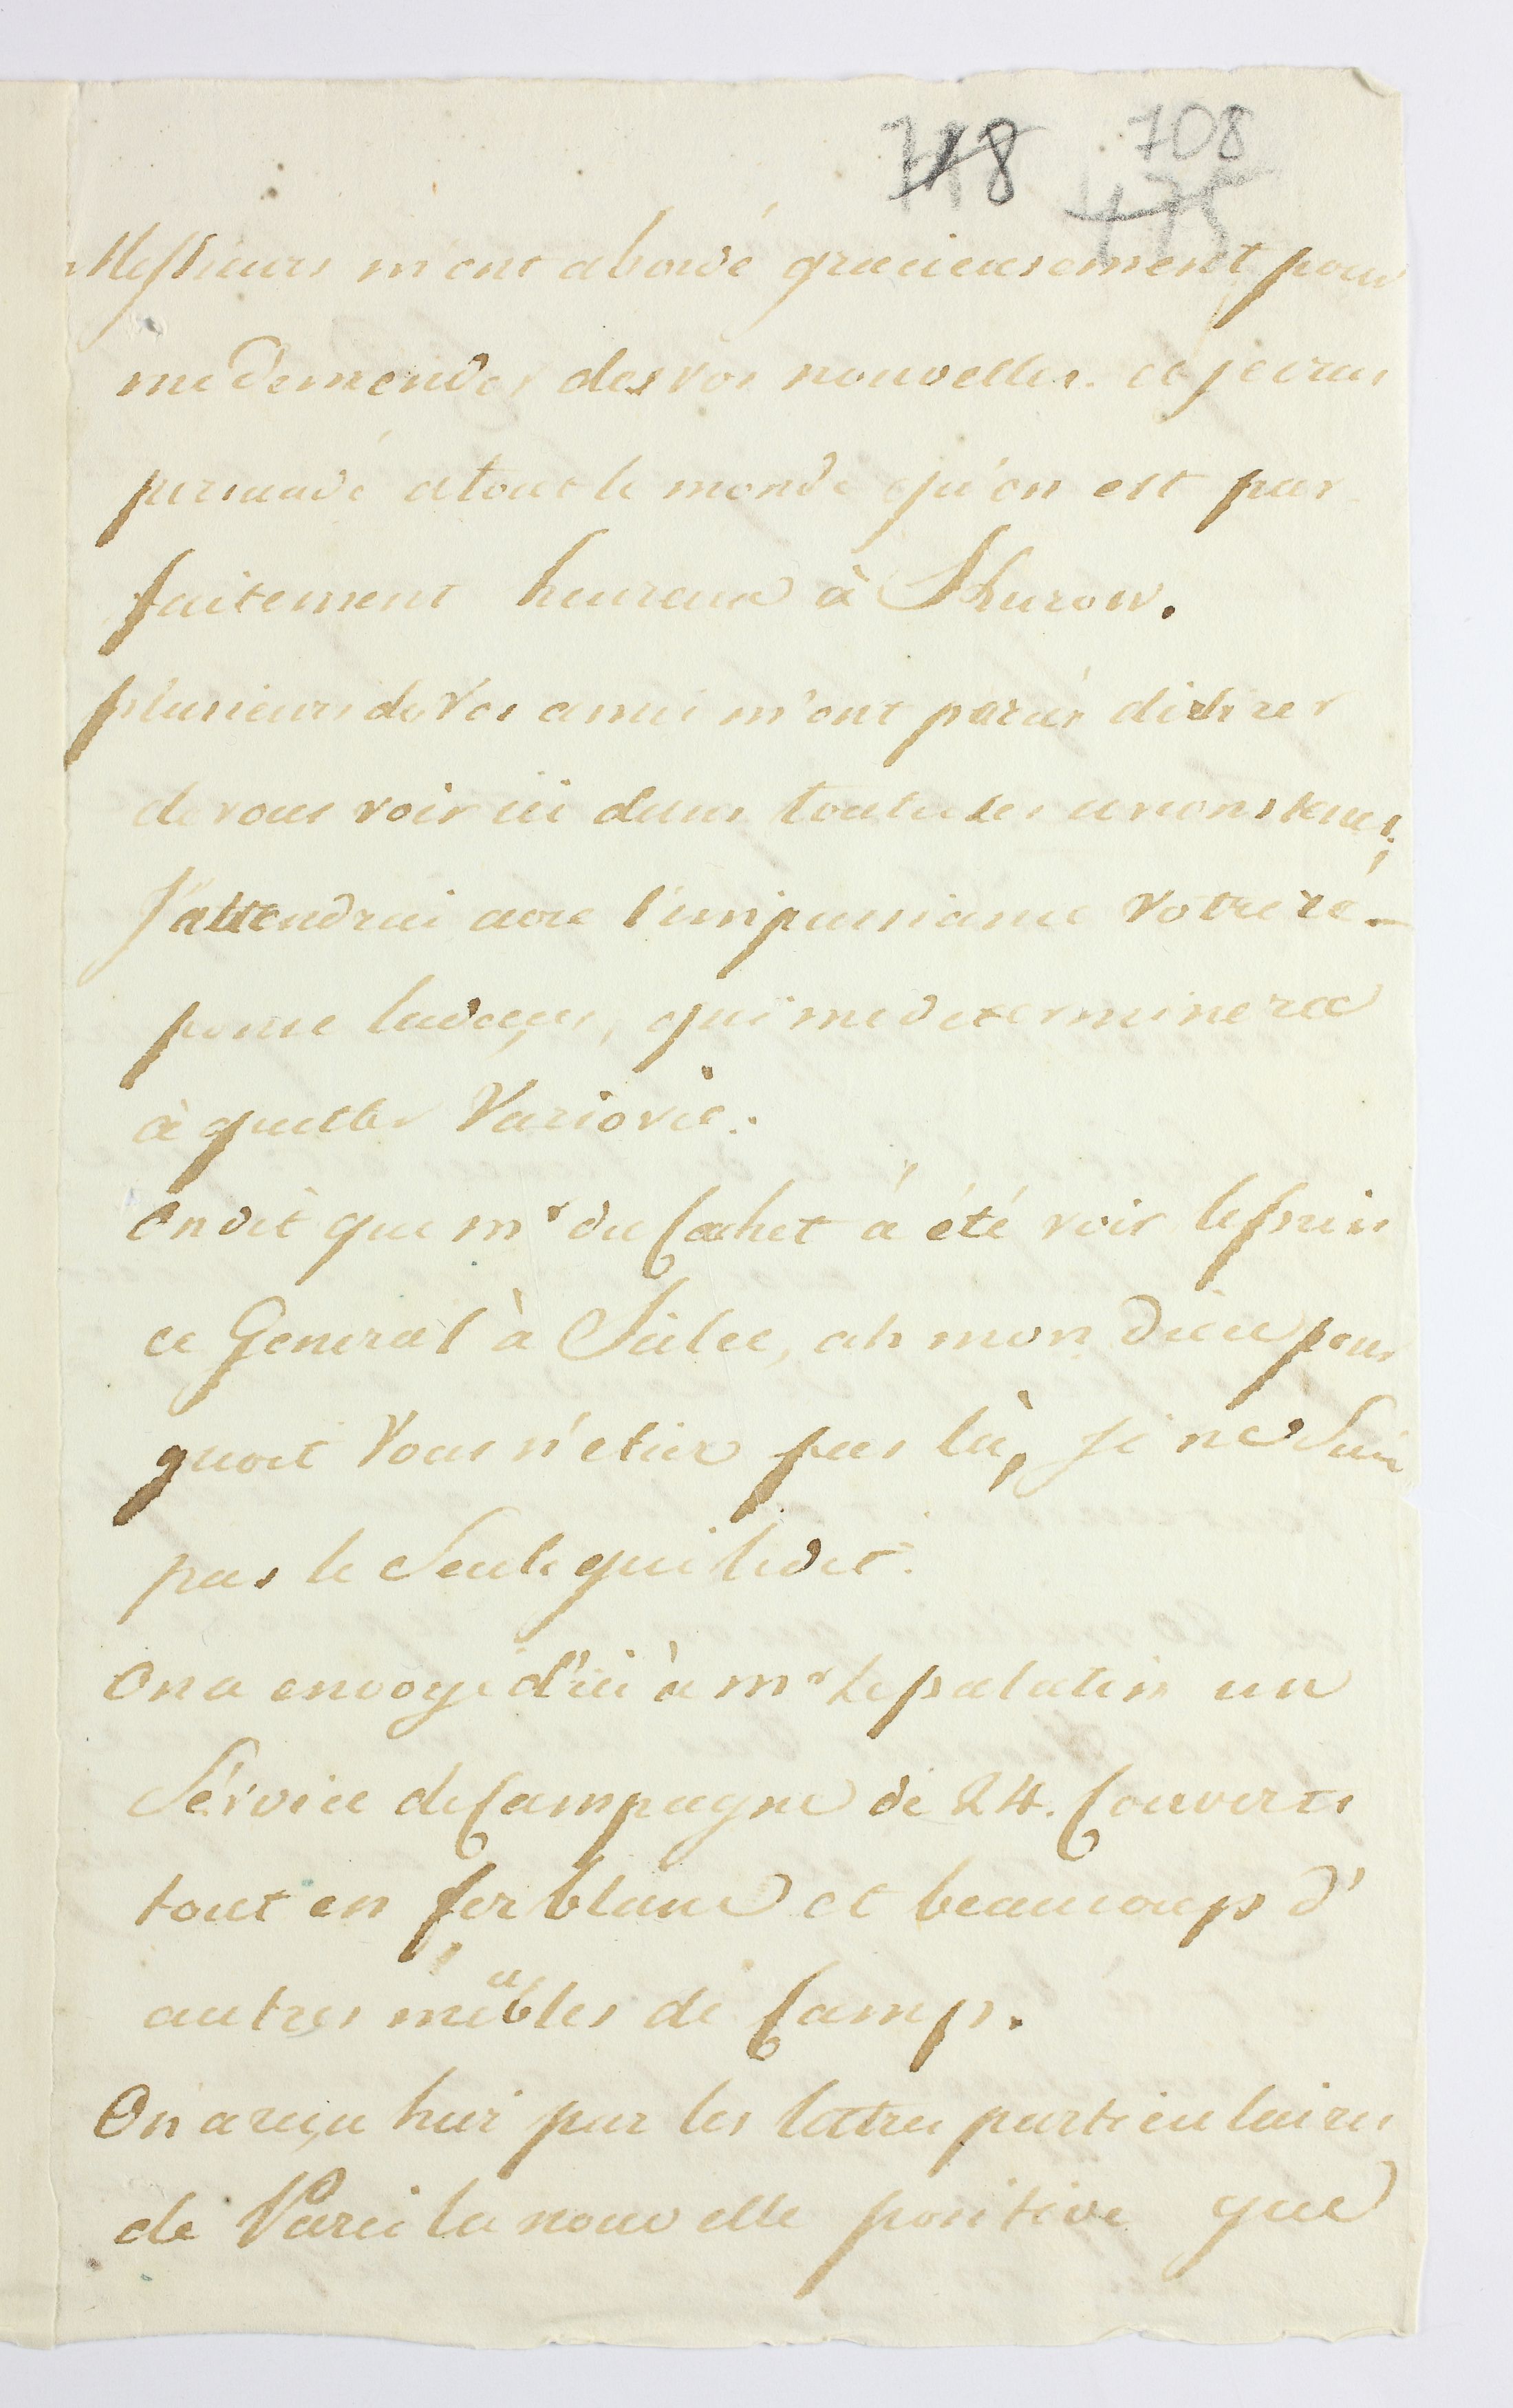 718 708
475
Messieurs m'ont abordé gracieusement pour
me demender des vos nouvelles. et j'ai
persuadé a tout le monde qu'on est par
faitement heureux à
plusieurs de vos amis m'ont parus desirer
de vous voir ici dans toutes les
J'attendrai avec l'impassiance votre ré-
ponse qui me determinera
à quitter Varsovie.
On dit que mr du Cachet á été voir le prin
ce General à ah mon Dieu pour
quoit Vous n'etiez pas là, je ne suis
pas le Seule qui le dit.
On a envoyé d'ici à mr le palatin un
Sérvice de Campagne de 24. Couverts
tout en fer blanc et beaucoup d'
autres meubles de Camp.
On a reçu hier par les lettres particulaires
de Paris la nouvelle positive que